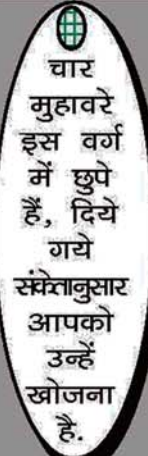 चार
मुहावरे
इस वर्ग
में छुपे
हैं, दिये
गये
संकेतानुसार
आपको
उन्हें
खोजना
है.